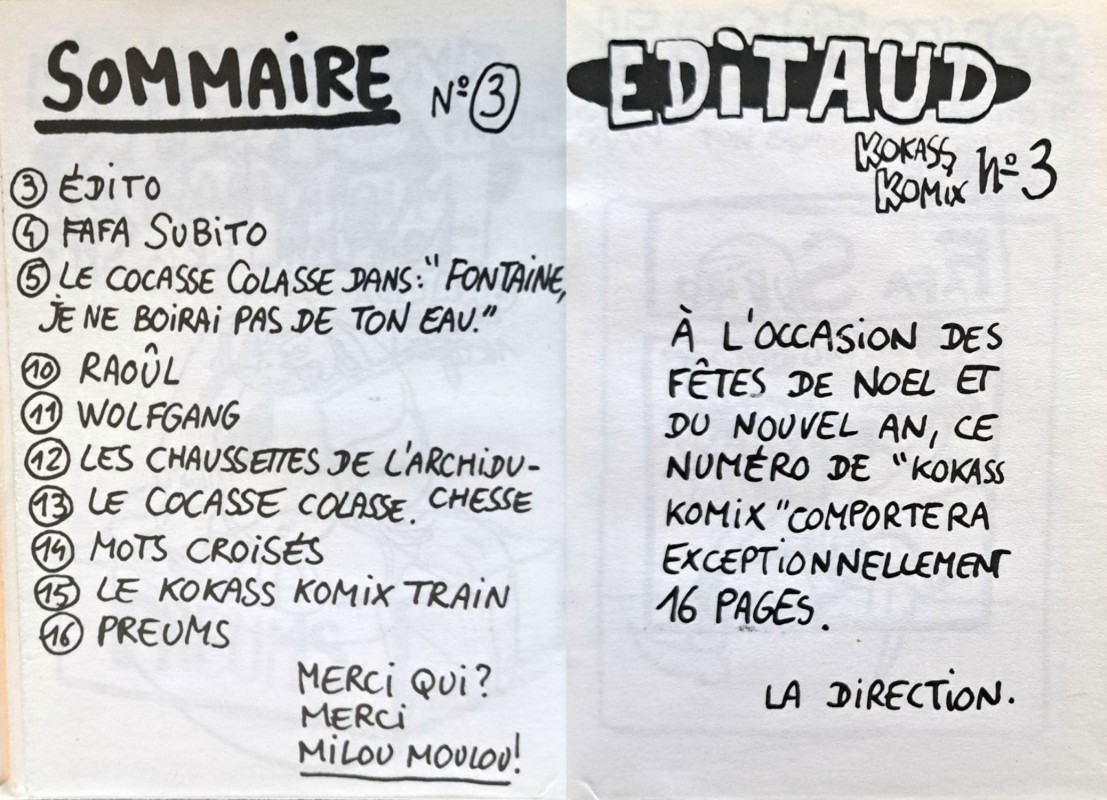 SOMMAIRE N°3
3 ÉDITO
4 FAFA SUBITO
5 LE COCASSE COLASSE DANS: "FONTAINE,
JE NE BOIRAI PAS DE TON EAU."
10 RAOÛL
11 WOLFGANG
12 LES CHAUSSETTES DE L'ARCHIDU-
CHESSE
13 LE COCASSE COLASSE.
14 MOTS CROISÉS
15 LE KOKASS KOMIX TRAIN
16 PREUMS
MERCI QUI?
MERCI
MILOU MOULOU!
EDITAUD
KOKASS
KOMIX n°3
À L'OCCASION DES
FÊTES DE NOEL ET
DU NOUVEL AN, CE
NUMÉRO DE "KOKASS
KOMIX" COMPORTERA
EXCEPTIONNELLEMENT
16 PAGES.
LA DIRECTION.